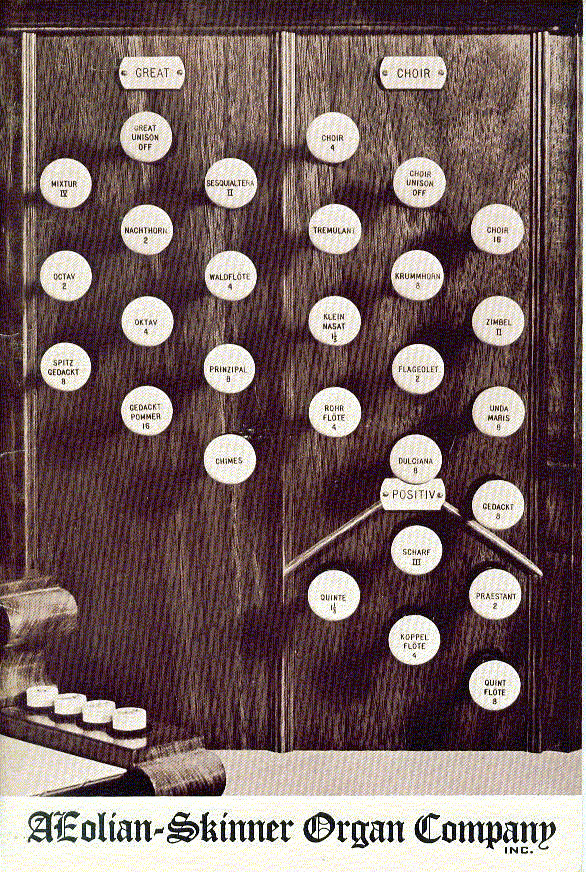 GREAT
GREAT
UNISON
OFF
MIXTUR
IV
SESQUIALTERA
II
NACHTHORN
2
OCTAV
2
WALDFLÖTE
4
OKTAV
4
SPITZ
GEDACKT
8
PRINZIPAL
8
GEDACKT
POMMER
16
CHIMES
CHOIR
CHOIR
4
CHOIR
UNISON
OFF
TREMULANT
CHOIR
16
KRUMMHORN
8
KLEIN
NASAT
1⅓
ZIMBEL
II
FLAGEOLET
2
ROHR
FLÖTE
4
UNDA
MARIS
8
DULCIANA
8
GEDACKT
8
POSITIV
SCHARF
III
QUINTE
1⅓
PRAESTANT
2
KOPPEL
FLÖTE
4
QUINT
FLÖTE
8
Æolian-Skinner Organ Company
INC.